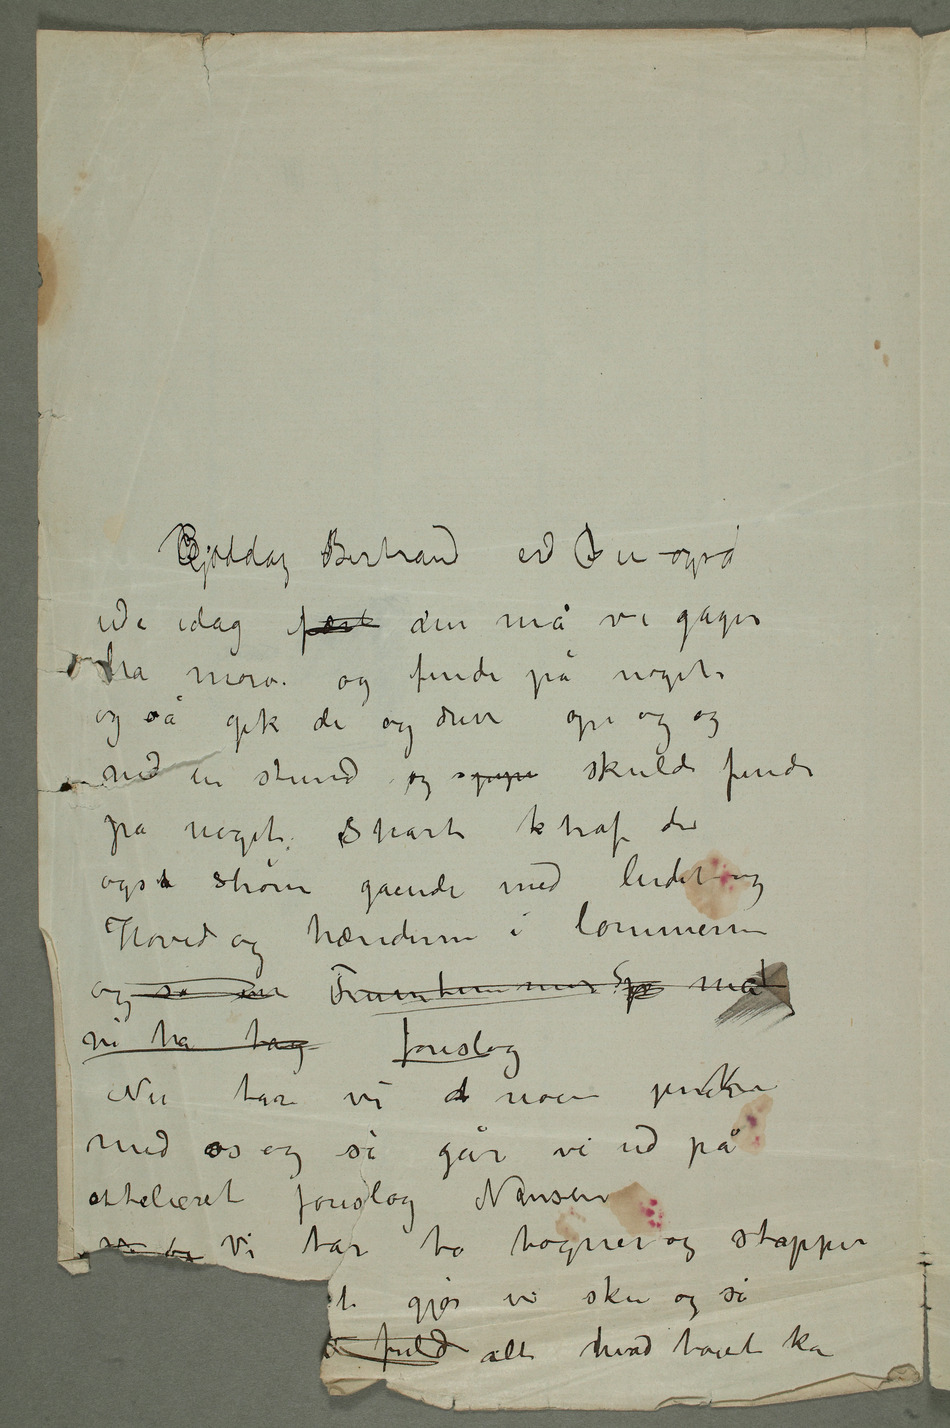 Goddag Bertrand er Du også
ude idag fært den må vi gager
ha moro. og finde på noget
og så gik de og drev op og og
ned en stund og skulde finde
på noget. Snart traf de
også Strøm gående med ludet
Hoved og hænderne i lommerne
og så en Fruentimmer må
vi ha tag foreslog
Nu tar vi noen pinker
med os og så går vi ud på
attelieret foreslog Nansen
Vi tar to vogner og stapper
t gjør vi sku og så
fuld alt hvad tøiet ka